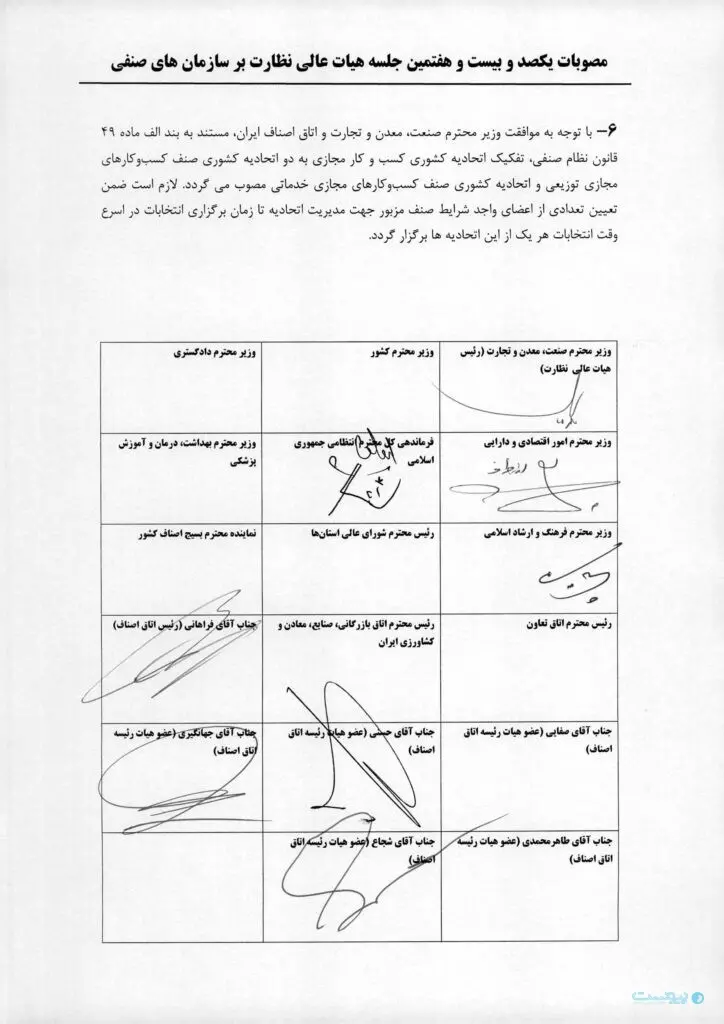 مصوبات یکصد و بیست و هفتمین جلسه هیات عالی نظارت بر سازمان های صنفی
۶– با توجه به موافقت وزیر محترم صنعت، معدن و تجارت و اتاق اصناف ایران، مستند به بند الف ماده ۴۹
قانون نظام صنفی، تفکیک اتحادیه کشوری کسب و کار مجازی به دو اتحادیه کشوری صنف کسب‌وکارهای
مجازی توزیعی و اتحادیه کشوری صنف کسب‌وکارهای مجازی خدماتی مصوب می گردد. لازم است ضمن
تعیین تعدادی از اعضای واجد شرایط صنف مزبور جهت مدیریت اتحادیه تا زمان برگزاری انتخابات در اسرع
وقت انتخابات هر یک از این اتحادیه ها برگزار گردد.
وزیر محترم صنعت، معدن و تجارت (رئیس
هیات عالی نظارت)
وزیر محترم کشور
وزیر محترم دادگستری
وزیر محترم امور اقتصادی و دارایی
فرماندهی کل محترم انتظامی جمهوری
اسلامی
وزیر محترم بهداشت، درمان و آموزش
پزشکی
وزیر محترم فرهنگ و ارشاد اسلامی
رئیس محترم شورای عالی استان‌ها
نماینده محترم بسیج اصناف کشور
رئیس محترم اتاق تعاون
رئیس محترم اتاق بازرگانی، صنایع، معادن و
کشاورزی ایران
جناب آقای فراهانی (رئیس اتاق اصناف)
جناب آقای صفایی (عضو هیات رئیسه اتاق
اصناف)
جناب آقای حسنی (عضو هیات رئیسه اتاق
اصناف)
جناب آقای جهانگیری (عضو هیات رئیسه
اتاق اصناف)
جناب آقای طاهرمحمدی (عضو هیات رئیسه
اتاق اصناف)
جناب آقای شجاع (عضو هیات رئیسه اتاق
اصناف)
پیوست